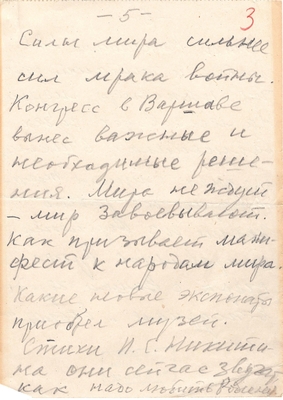 - 5 -
3
Силы мира сильнее
сил мрака войны.
Конгресс в Варшаве
вынес важные и
необходимые реше-
ния. Мира не ждут
- мир завоевывают.
Как призывает мани-
фест к народам мира.
Какие новые экспонаты
приобрел музей.
Стихи И. С. Никити-
на они сейчас звучат
как надо любить